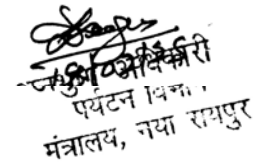 अधिकारी
पर्यटन विभाग
मंत्रालय, नया रायपुर